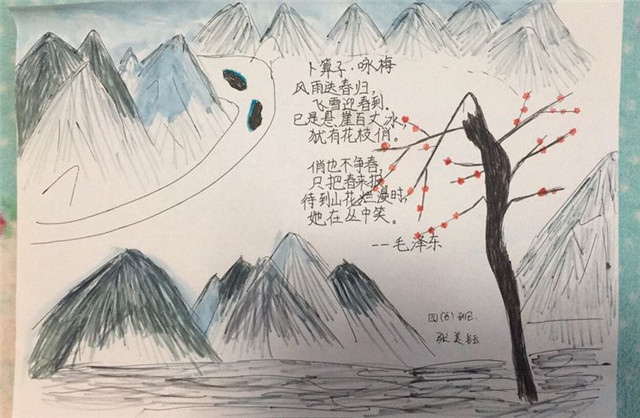 卜算子·咏梅
风雨送春归,
飞雪迎春到。
已是悬崖百丈冰,
犹有花枝俏。
俏也不争春,
只把春来报,
待到山花烂漫时,
她在丛中笑。
--毛泽东
四(6)班
张美钰